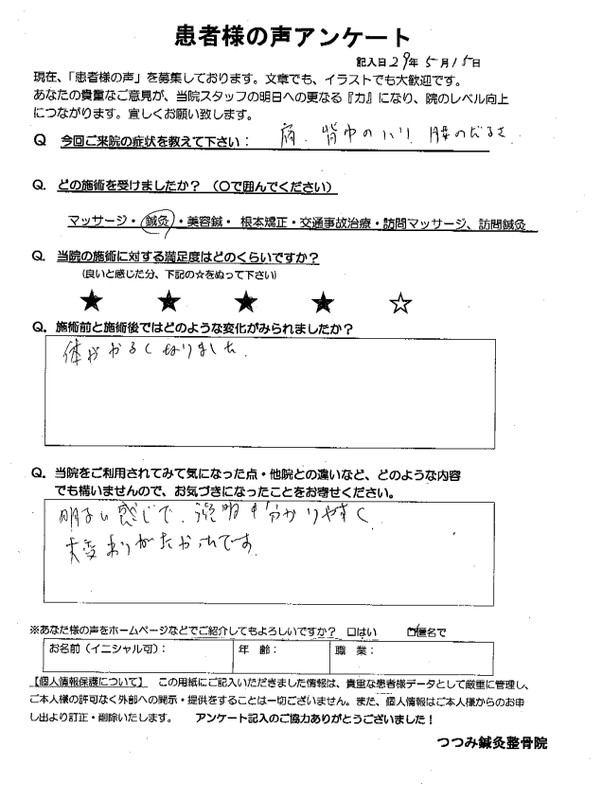 患者様の声アンケート
記入日29年5月15日
現在、「患者様の声」を募集しております。文章でも、イラストでも大歓迎です。
あなたの貴重なご意見が、当院スタッフの明日への更なる『力』になり、院のレベル向上
につながります。宜しくお願い致します。
Q 今回ご来院の症状を教えて下さい： 肩、背中のハリ 腰のだるさ
Q. どの施術を受けましたか？（〇で囲んでください）
マッサージ・鍼灸・美容鍼・根本矯正・交通事故治療・訪問マッサージ、訪問鍼灸
Q. 当院の施術に対する満足度はどのくらいですか？
（良いと感じた分、下記の☆をぬって下さい）
★ ★ ★ ★ ☆
Q. 施術前と施術後ではどのような変化がみられましたか？
体がかるくなりました。
Q. 当院をご利用されてみて気になった点・他院との違いなど、どのような内容
でも構いませんので、お気づきになったことをお寄せください。
明るい感じで、説明も分かりやすく
大変ありがたかったです。
※あなた様の声をホームページなどでご紹介してもよろしいですか？ 口はい 口匿名で
お名前（イニシャル可）： 年 齢： 職 業：
【個人情報保護について】 この用紙にご記入いただきました情報は、貴重な患者様データとして厳重に管理し、
ご本人様の許可なく外部への開示・提供をすることは一切ございません。また、個人情報はご本人様からのお申
し出より訂正・削除いたします。 アンケート記入のご協力ありがとうございました！
つつみ鍼灸整骨院